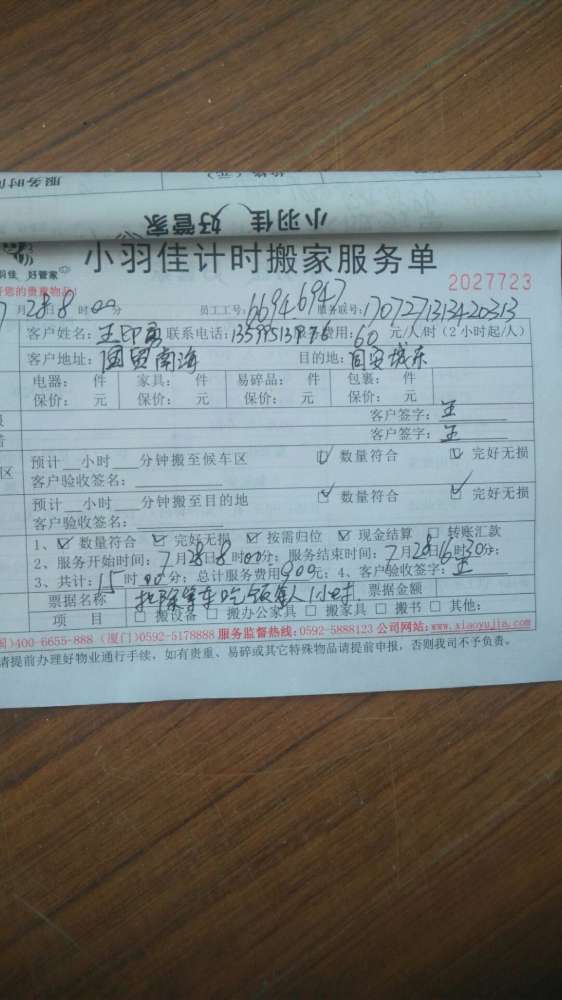 服务时间
小羽佳 好管家
小羽佳计时搬家服务单
羽佳 好管家
2027723
好您的贵重物品!
7月28日8时00分 员工工号:6694.6947 服务联号:1707271313420313
客户姓名:王印勇 联系电话: 服务费用:60元/人/时(2小时起/人)
客户地址:国贸南海 目的地:同安城东
电器: 件 家具: 件 易碎品: 件 包裹: 件
保价: 元 保价: 元 保价: 元 保价: 元
客户签字:王
客户签字:王
区 预计__小时__分钟搬至候车区 ☑ 数量符合 ☑ 完好无损
客户验收签名:
预计__小时__分钟搬至目的地 ☑ 数量符合 ☑ 完好无损
客户验收签名:
1、☑ 数量符合 ☑ 完好无损 ☑ 按需归位 ☑ 现金结算 □ 转账汇款
2、服务开始时间:7月28日8时00分;服务结束时间:7月28日16时30分;
3、共计:15时00分;总计服务费用900元;4、客户验收签字:王
票据名称 扣除等车吃饭每人1小时. 票据金额
项 目 □ 搬设备 □ 搬办公家具 □ 搬家具 □ 搬书 □ 其他:
国)400-6655-888 (厦门)0592-5178888 服务监督热线:0592-5888123 公司网站:www.xiaoyujia.com
请提前办理好物业通行手续,如有贵重、易碎或其它特殊物品请提前申报,否则我司不予负责。